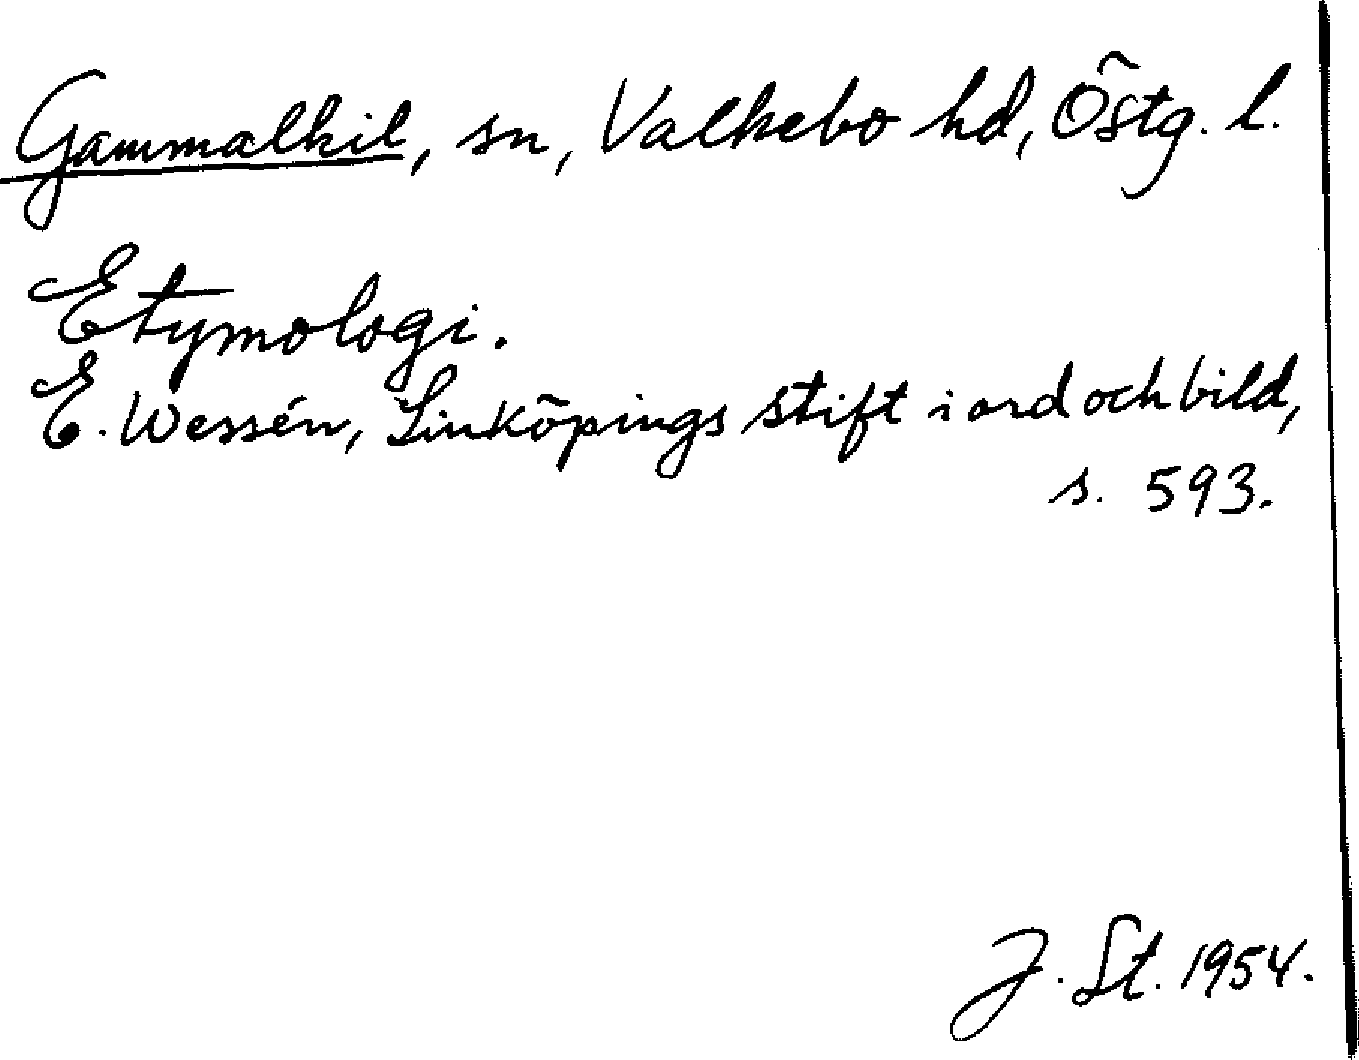 Gammalkil, sn, Valkebo hd, Östg. l.
Etymologi.
E. Wessén, Linköpings stift i ord och bild,
s. 593.
J. St. 1954.